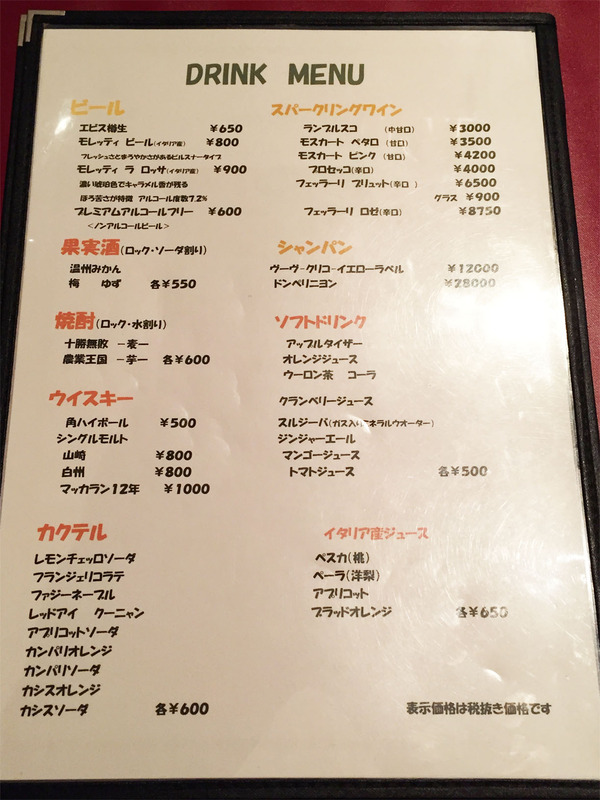 DRINK MENU
ビール
エビス樽生 ¥650
モレッティ ビール(イタリア産) ¥800
フレッシュさとまろやかさがあるピルスナータイプ
モレッティ ラ ロッサ(イタリア産) ¥900
濃い琥珀色でキャラメル香が残る
ほろ苦さが特徴 アルコール度数7.2%
プレミアムアルコールフリー ¥600
<ノンアルコールビール>
果実酒(ロック・ソーダ割り)
温州みかん
梅 ゆず 各¥550
焼酎(ロック・水割り)
十勝無敗 −麦−
農業王国 −芋− 各¥600
ウイスキー
角ハイボール ¥500
シングルモルト
山崎 ¥800
白州 ¥800
マッカラン12年 ¥1000
カクテル
レモンチェッロソーダ
フランジェリコラテ
ファジーネーブル
レッドアイ クーニャン
アプリコットソーダ
カンパリオレンジ
カンパリソーダ
カシスオレンジ
カシスソーダ 各¥600
スパークリングワイン
ランブルスコ (中甘口) ¥3000
モスカート ペタロ (甘口) ¥3500
モスカート ピンク (甘口) ¥4200
プロセッコ(辛口) ¥4000
フェッラーリ ブリュット(辛口 ) ¥6500
グラス ¥900
フェッラーリ ロゼ(辛口) ¥8750
シャンパン
ヴーヴ-クリコ-イエローラベル ¥12000
ドンペリニヨン ¥28000
ソフトドリンク
アップルタイザー
オレンジジュース
ウーロン茶 コーラ
クランベリージュース
スルジーバ(ガス入りミネラルウオーター)
ジンジャーエール
マンゴージュース
トマトジュース 各¥500
イタリア産ジュース
ペスカ(桃)
ペーラ(洋梨)
アプリコット
ブラッドオレンジ 各¥650
表示価格は税抜き価格です